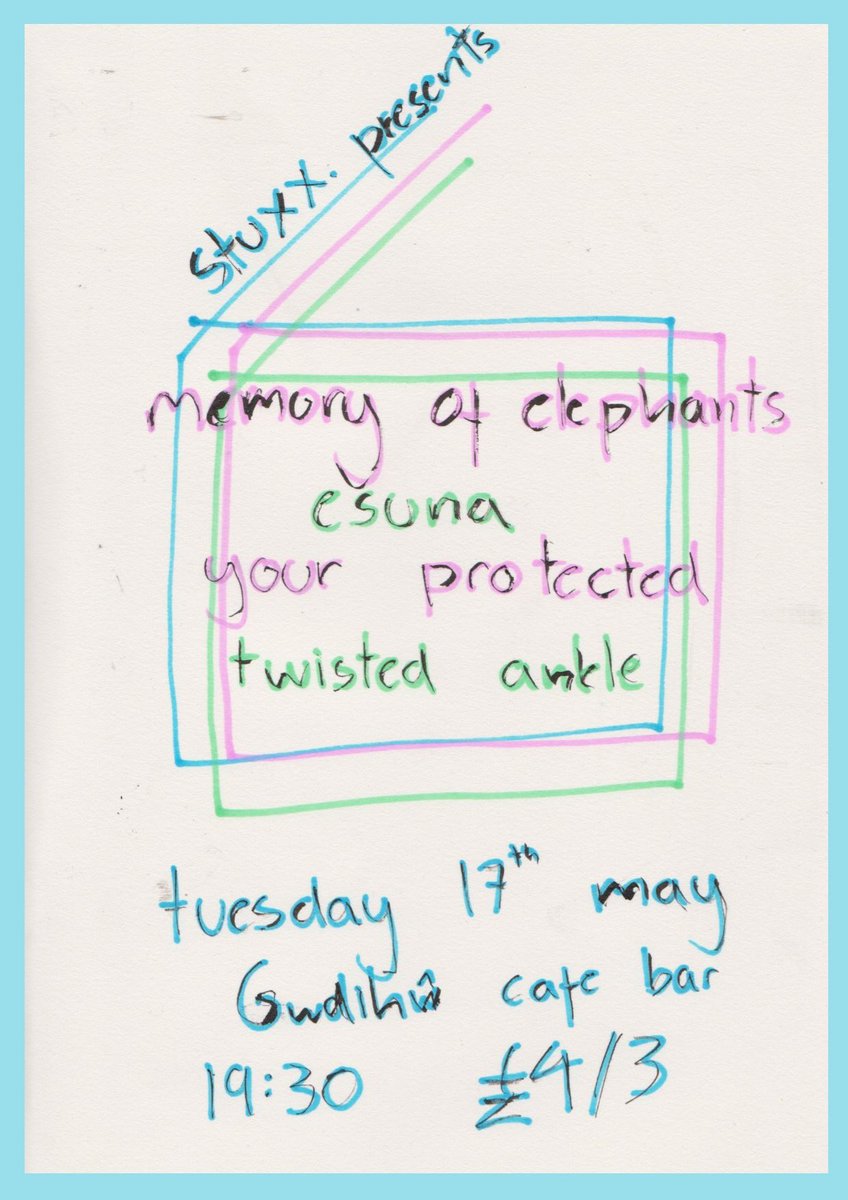 stuxx. presents
memory of elephants
esuna
your protected
twisted ankle
tuesday 17th may
Gwdihŵ cafe bar
19:30 £4/3